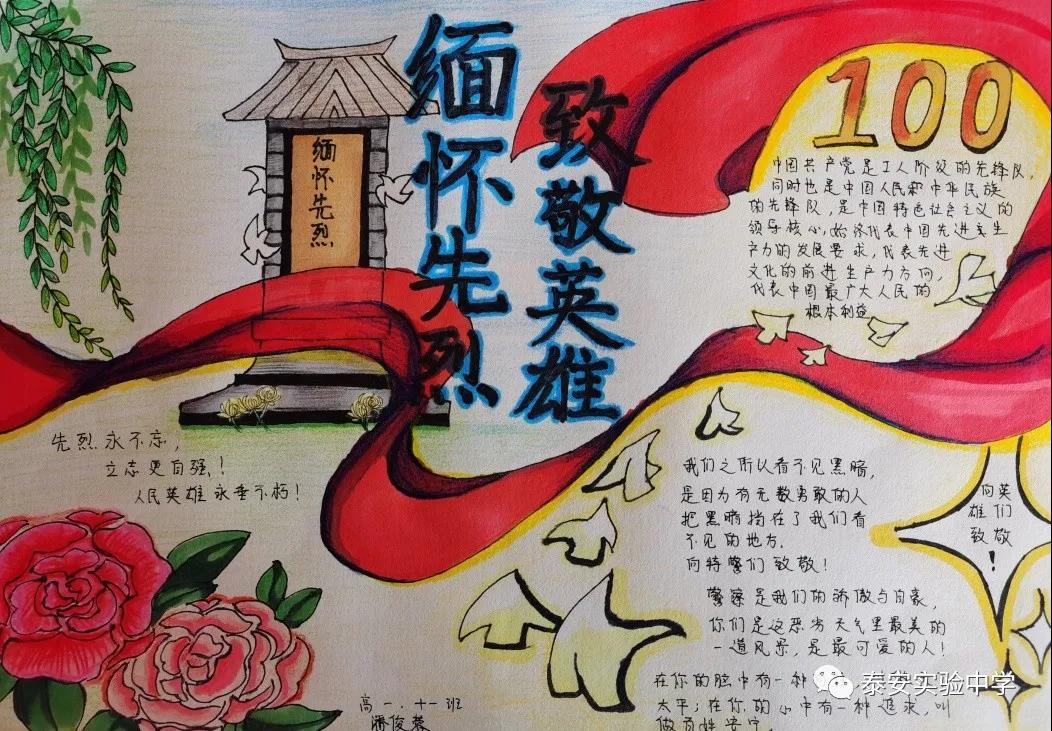 缅怀先烈
致敬英雄
缅怀先烈
100
中国共产党是工人阶级的先锋队,
同时也是中国人民和中华民族
的先锋队,是中国特色社会主义的
领导核心,始终代表中国先进生
产力的发展要求,代表先进
文化的前进生产力方向,
代表中国最广大人民的
根本利益
先烈永不忘,
立志更自强!
人民英雄永垂不朽!
我们之所以看不见黑暗,
是因为有无数勇敢的人
把黑暗挡在了我们看
不见的地方.
向特警们致敬!
向英
雄们
致敬
!
警察是我们的骄傲与自豪,
你们是这恶劣天气里最美的
一道风景,是最可爱的人!
在你的脸中有一种
太平;在你的心中有一种追求,叫
做百姓安宁.
高一.十一班
潘俊蓉
泰安实验中学